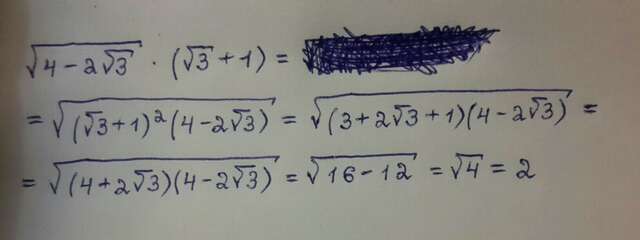 √(4-2√3) · (√3+1) =
= √((√3+1)²(4-2√3)) = √((3+2√3+1)(4-2√3)) =
= √((4+2√3)(4-2√3)) = √(16-12) = √4 = 2